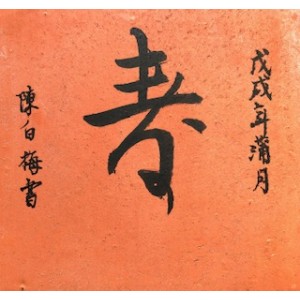 戊戌年蒲月
寿
陳白梅書